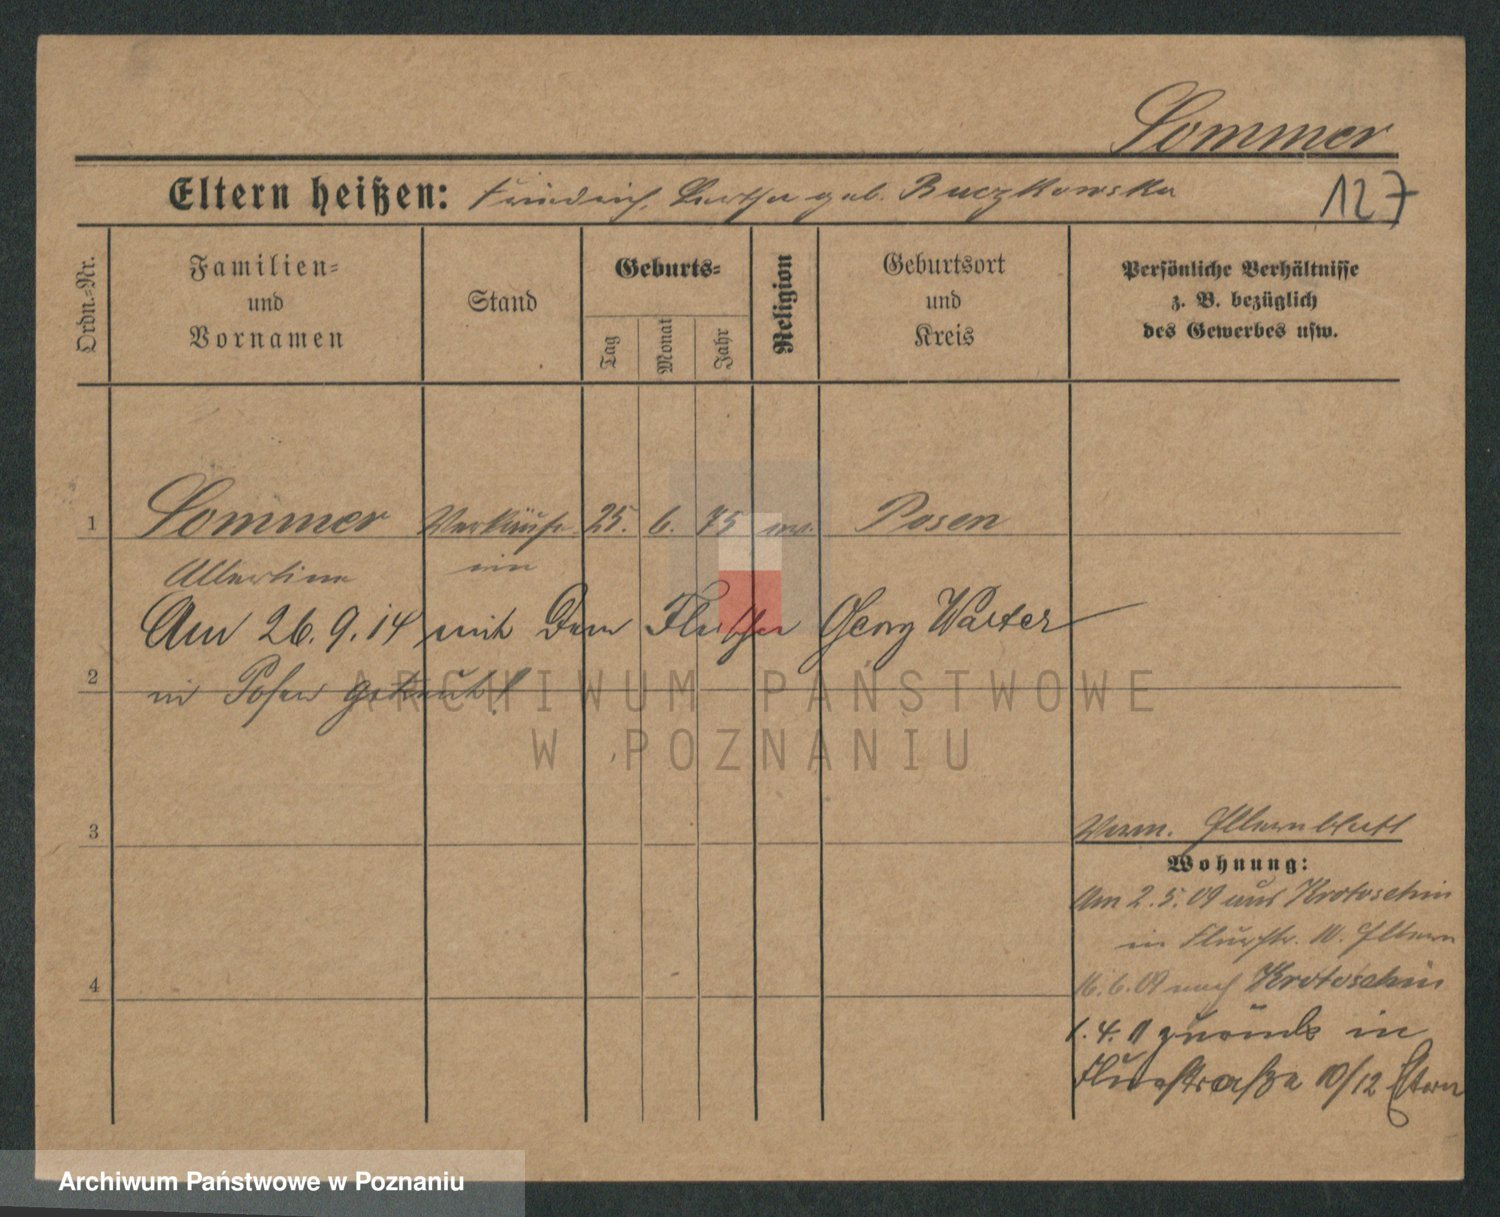 Sommer
Eltern heißen: Friedrich, Bertha geb. Buczkowska
127
Ordn.-Nr.
Familien-
und
Vornamen
Stand
Geburts-
Tag
Monat
Jahr
Religion
Geburtsort
und
Kreis
Persönliche Verhältnisse
z. B. bezüglich
des Gewerbes usw.
1 Sommer Verkäufe 25. 6. 75 Posen
Albertine rin
Am 26.9.14 mit dem Fleischer Georg Walter
2 in Posen getraut
ARCHIWUM PAŃSTWOWE
W POZNANIU
3
Elternblatt
Wohnung:
Am 2.5.09 aus Krotoschin
in Flurstr. 10. Eltern
4
16.6.09 nach Krotoschin
1.4.11 zurück in
Flurstraße 10/12 Eltern
Archiwum Państwowe w Poznaniu